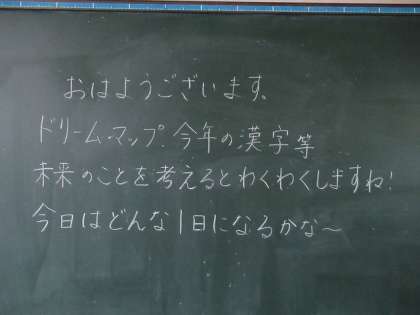 おはようございます。
ドリーム・マップ、今年の漢字等
未来のことを考えるとわくわくしますね!
今日はどんな1日になるかな～